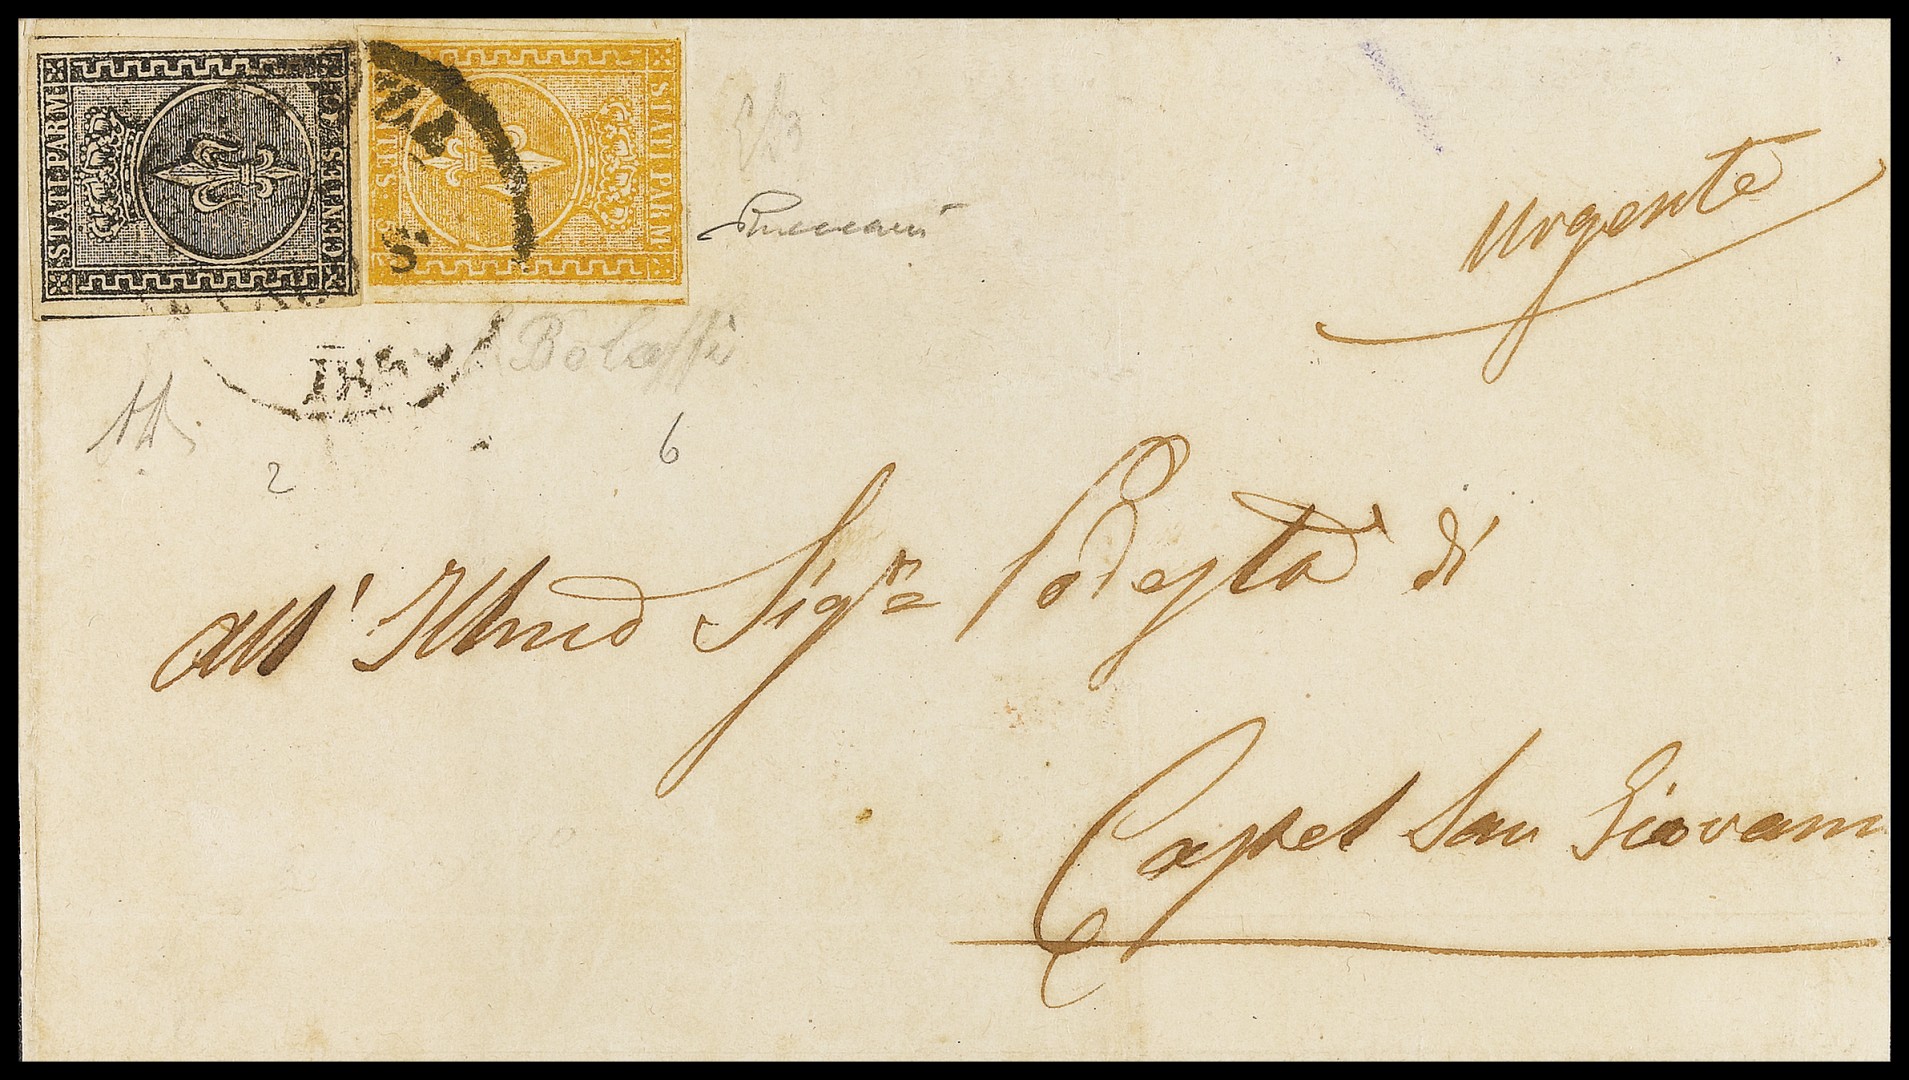 STATI PARM
10 CENTES.
STATI PARM
CENTES. 5
Urgente
Bolaffi
2
6
All' Illmo Sigr Podestà di
Castel San Giovanni